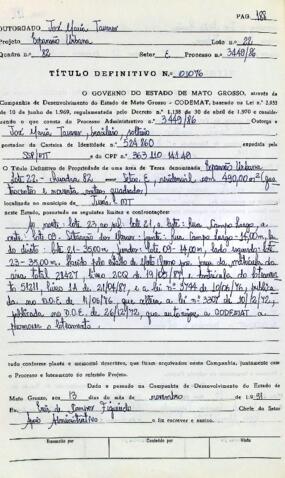 PAG. 188
OUTORGADO José Maria Tavares
Projeto Expansão Urbana Lote n.o 22
Quadra n.o 82 Setor E Processo n.o 3449/86
TÍTULO DEFINITIVO N.o 01076
O GOVERNO DO ESTADO DE MATO GROSSO, através da
Companhia de Desenvolvimento do Estado de Mato Grosso - CODEMAT, baseado na Lei n.o
de 10 de junho de 1969, regulamentada pelo Decreto n.o 1.138 de 30 de abril de 1970 e considerando
o que consta do Processo Administrativo n.o 3449/86 Outorga a
José Maria Tavares, brasileiro, solteiro
portador da Carteira de Identidade n.o 524160 expedida pela
SSP/MT e do CPF n.o
o Título Definitivo de Propriedade de uma área de Terra denominada Expansão Urbana
lote 22 - Quadra 82 - Setor E, residencial com 490,00m² (qua
trocentos e noventa metros quadrados)
localizada no município de MT
neste Estado, possuindo os seguintes limites e confrontações:
ao norte: lote 23 ao sul: lote 21, a leste: rua Campo Largo, a
oeste: lote 09. Rua Campo Largo - 14,00m, la
do direito: lote 21 - 35,00m, fundos: lote 09 - 14,00m lado esquerdo: lote
23 - 35,00m.
área total 28427 livro 2 19/03/87, e matrícula do loteamento
51211, livro 2A de 21/04/87, e a lei n.o 3744 de 10/06/76, publica
da no D.O.E. de 11/06/76, que altera a lei n.o 3307 de 10/12/72,
publicada no D.O.E. de 26/12/72, que autoriza a CODEMAT a
promover o loteamento.
tudo conforme planta e memorial descritivo, que ficam arquivados nesta Companhia, juntamente com
o Processo e loteamento do referido Projeto.
Dado e passado na Companhia de Desenvolvimento do Estado de
Mato Grosso, aos 13 dias do mês de novembro de 1991
Eu, de Campos Figueiredo Chefe do Setor
Apoio Administrativo o fiz escrever e assino.
Conferido por Visto